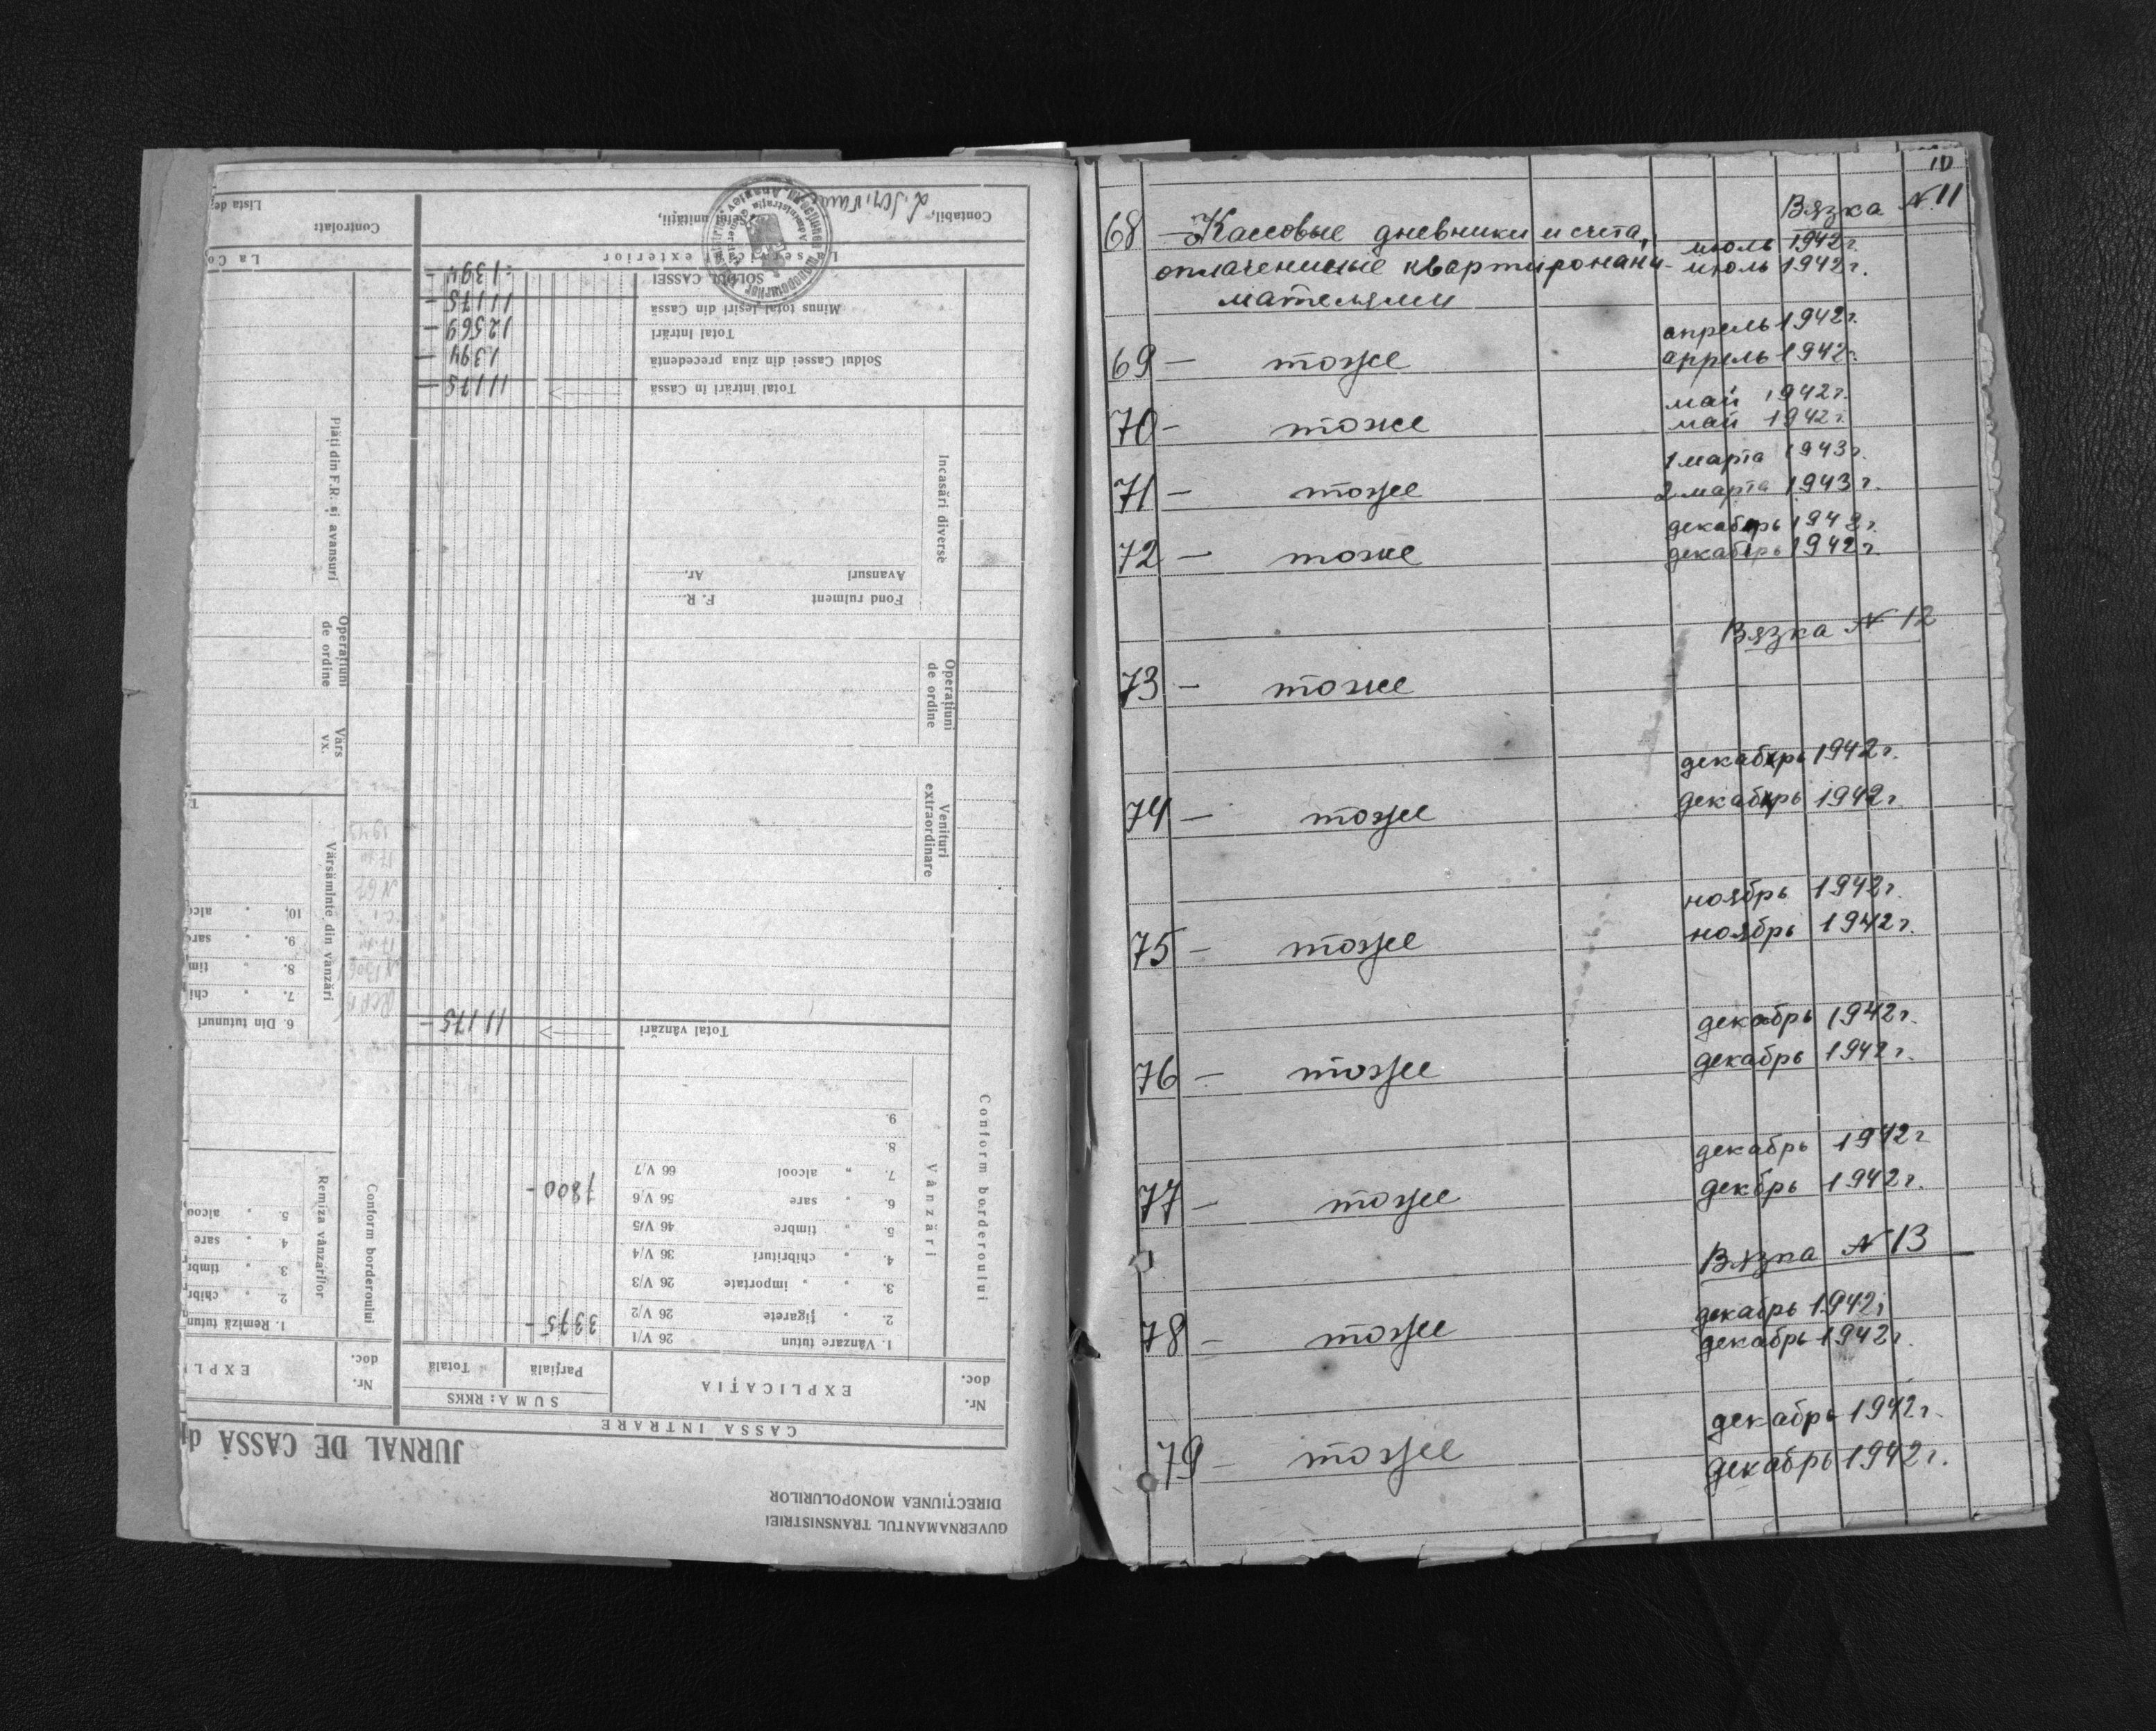 GUVERNAMANTUL TRANSNISTRIEI
DIRECȚIUNEA MONOPOLURILOR
JURNAL DE CASSĂ d
CASSA INTRARE
Nr. doc.
EXPLICAȚIA
SUMA: RKKS
Parțială
Totală
Conform borderoului
Vânzări
1. Vânzare tutun 26 V/1 3375-
2. " țigarete 26 V/2
3. " " importate 26 V/3
4. " chibrituri 36 V/4
5. " timbre 46 V/5
6. " sare 56 V/6 7800-
7. " alcool 66 V/7
8.
9.
Total vânzări 11175-
Venituri extraordinare
Operațiuni de ordine
Incasări diverse
Fond rulment F. R.
Avansuri Ar.
Total intrări în Cassă 11175-
Soldul Cassei din ziua precedentă 1394-
Total Intrări 12569-
Minus total Ieșiri din Cassă 11175-
SOLDUL CASSEI 1394-
Contabil,
Șeful unității,
Nr. doc.
EXPL
Conform borderoului
Remiza vânzarilor
1. Remiză tutun
2. " chibr
3. " timbr
4. " sare
5. " alcoo
Vărsăminte din vânzări
6. Din tutunuri
7. " chi
8. " tim
9. " sare
10. " alco
Vărs vx.
Operațiuni de ordine
Plăți din F.R. și avansuri
La Co
Controlat:
Lista de
10
Вязка №11
68 – Кассовые дневники и счета, июль 1942г.
оплаченные квартиронани- июль 1942г.
мателями
апрель 1942г.
69 – тоже апрель 1942г.
май 1942г.
70 – тоже май 1942г.
1 марта 1943г.
71 – тоже 2 марта 1943г.
декабрь 1942г.
72 – тоже декабрь 1942г.
Вязка № 12
73 – тоже
декабрь 1942г.
74 – тоже декабрь 1942г.
ноябрь 1942г.
75 – тоже ноябрь 1942г.
декабрь 1942г.
76 – тоже декабрь 1942г.
декабрь 1942г
77 – тоже декбрь 1942г.
Вязка № 13
декабрь 1942г
78 – тоже декабрь 1942г.
декабрь 1942г.
79 – тоже декабрь 1942г.